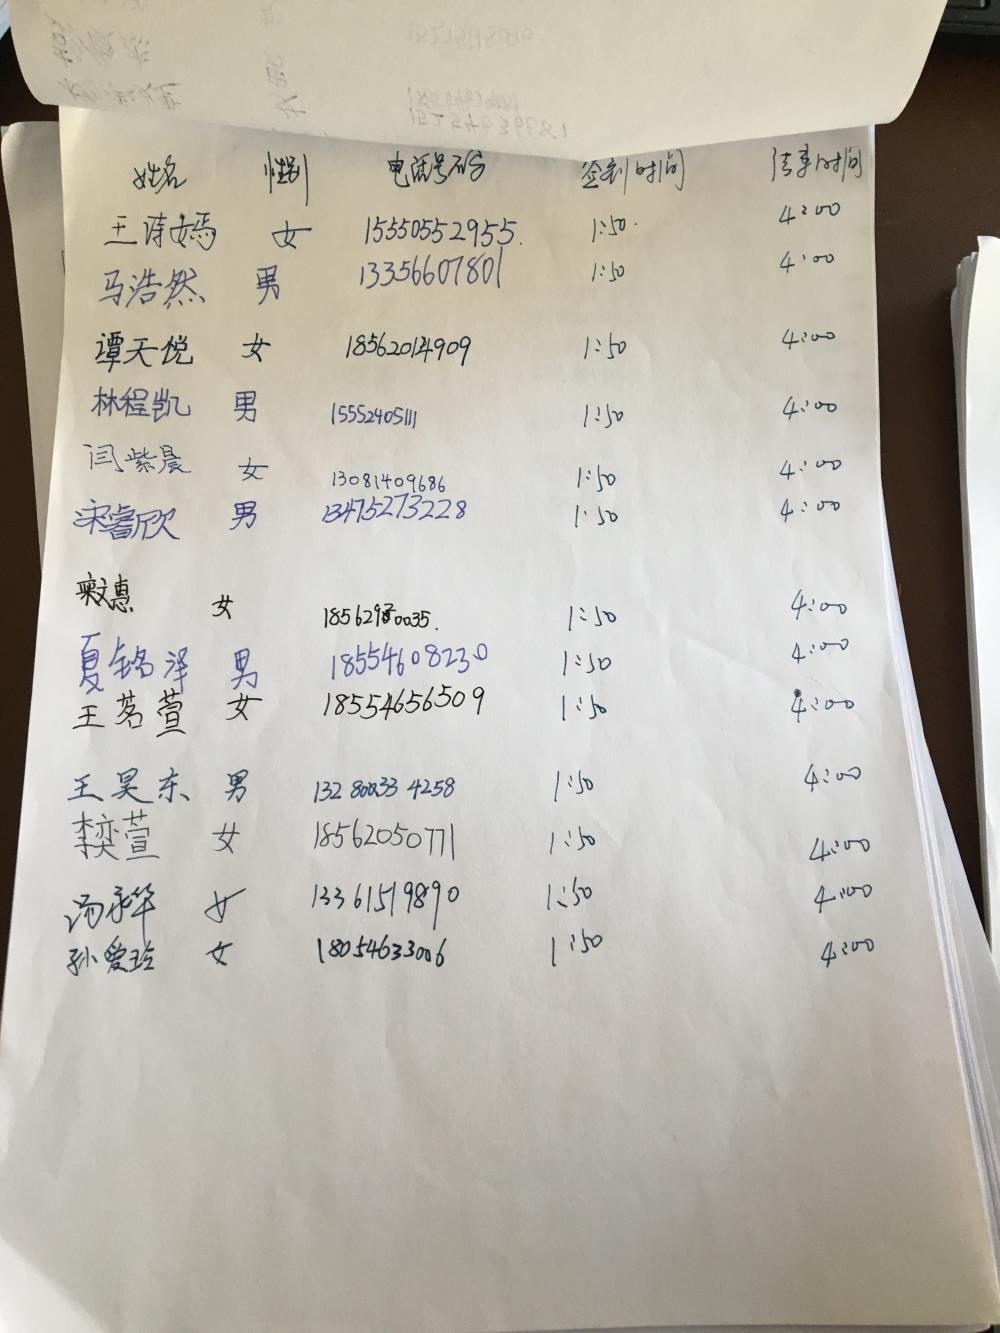 姓名 性别 电话号码 签到时间 结束时间
王诗嫣 女 15550552955. 1:50 4:00
马浩然 男 13356607801 1:50 4:00
谭天悦 女 18562014909 1:50 4:00
林程凯 男 15552405111 1:50 4:00
闫紫晨 女 13081409686 1:50 4:00
宋睿欣 男 13475273228 1:50 4:00
女 1:50 4:00
夏铭泽 男 18554608230 1:50 4:00
王茗萱 女 18554656509 1:50 4:00
王昊东 男 132800334258 1:50 4:00
李奕萱 女 18562050771 1:50 4:00
汤承华 女 13361519890 1:50 4:00
孙爱玲 女 18054633006 1:50 4:00